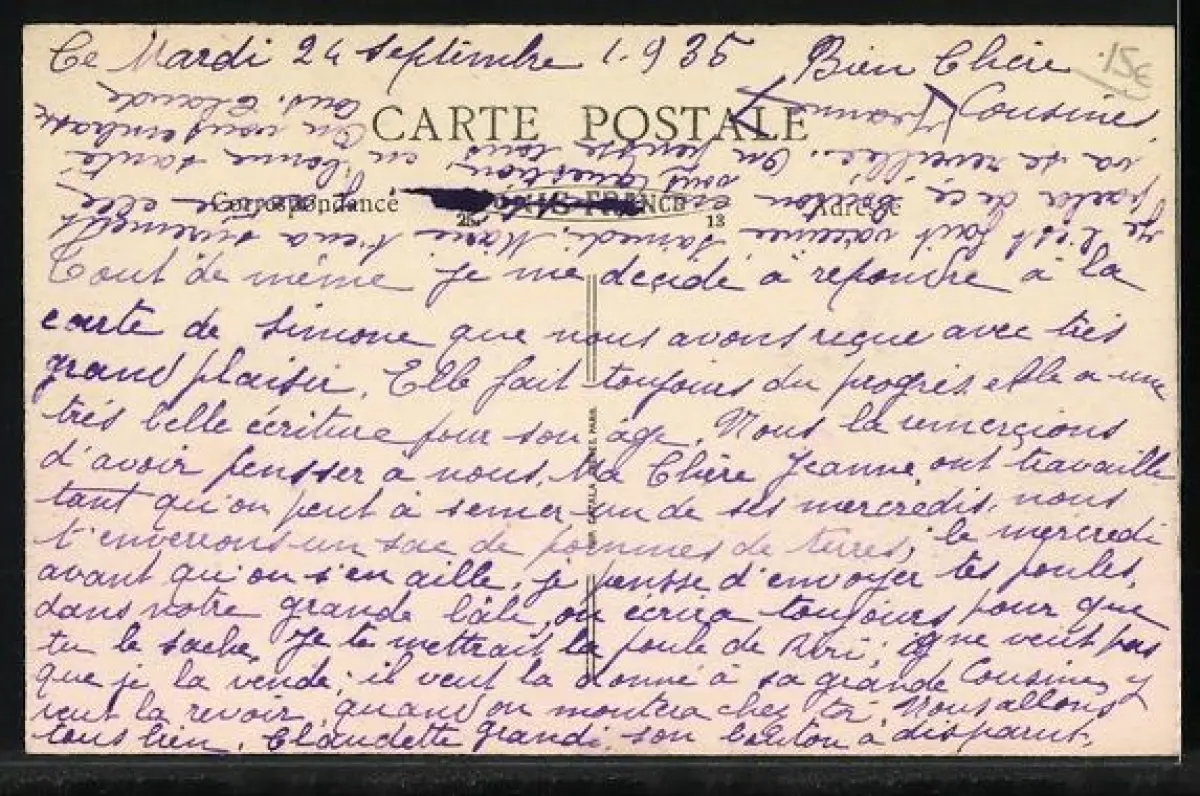 Ce Mardi 24 Septembre 1.935 Bien Chère
Cousine,
Jeanne
15€
CARTE POSTALE
Correspondance
Adresse
13
Tout de même je me deçide à repondre à la
carte de Simone que nous avons reçue avec très
grand plaisir. Elle fait toujours du progrès elle a une
très belle écriture pour son âge. Nous la remerçions
d'avoir pensser à nous. Ma Chère Jeanne, ont travaille
tant qu'on peut à semer un de ses mercredis, nous
t'enverrons un sac de pommes de terres, le mercredi
avant qu'on s'en aille, je pensse d'envoyer tes poules,
dans notre grande on écrira toujours pour que
tu le sache. Je te mettrait la poule de ne veut pas
que je la vende; il veut la donné à sa grande Cousine, y
veut la revoir, quand on montera chez toi. Nous allons
tous bien. Claudette grandi, son bouton a disparut,
je l'est fait vaccinée samedi. Marie t'en a surement
parler de ce bouton en question, je elle
va se reveillée. On pensse tous en bonne santé
vous
On vous embrasse
tous. Claude